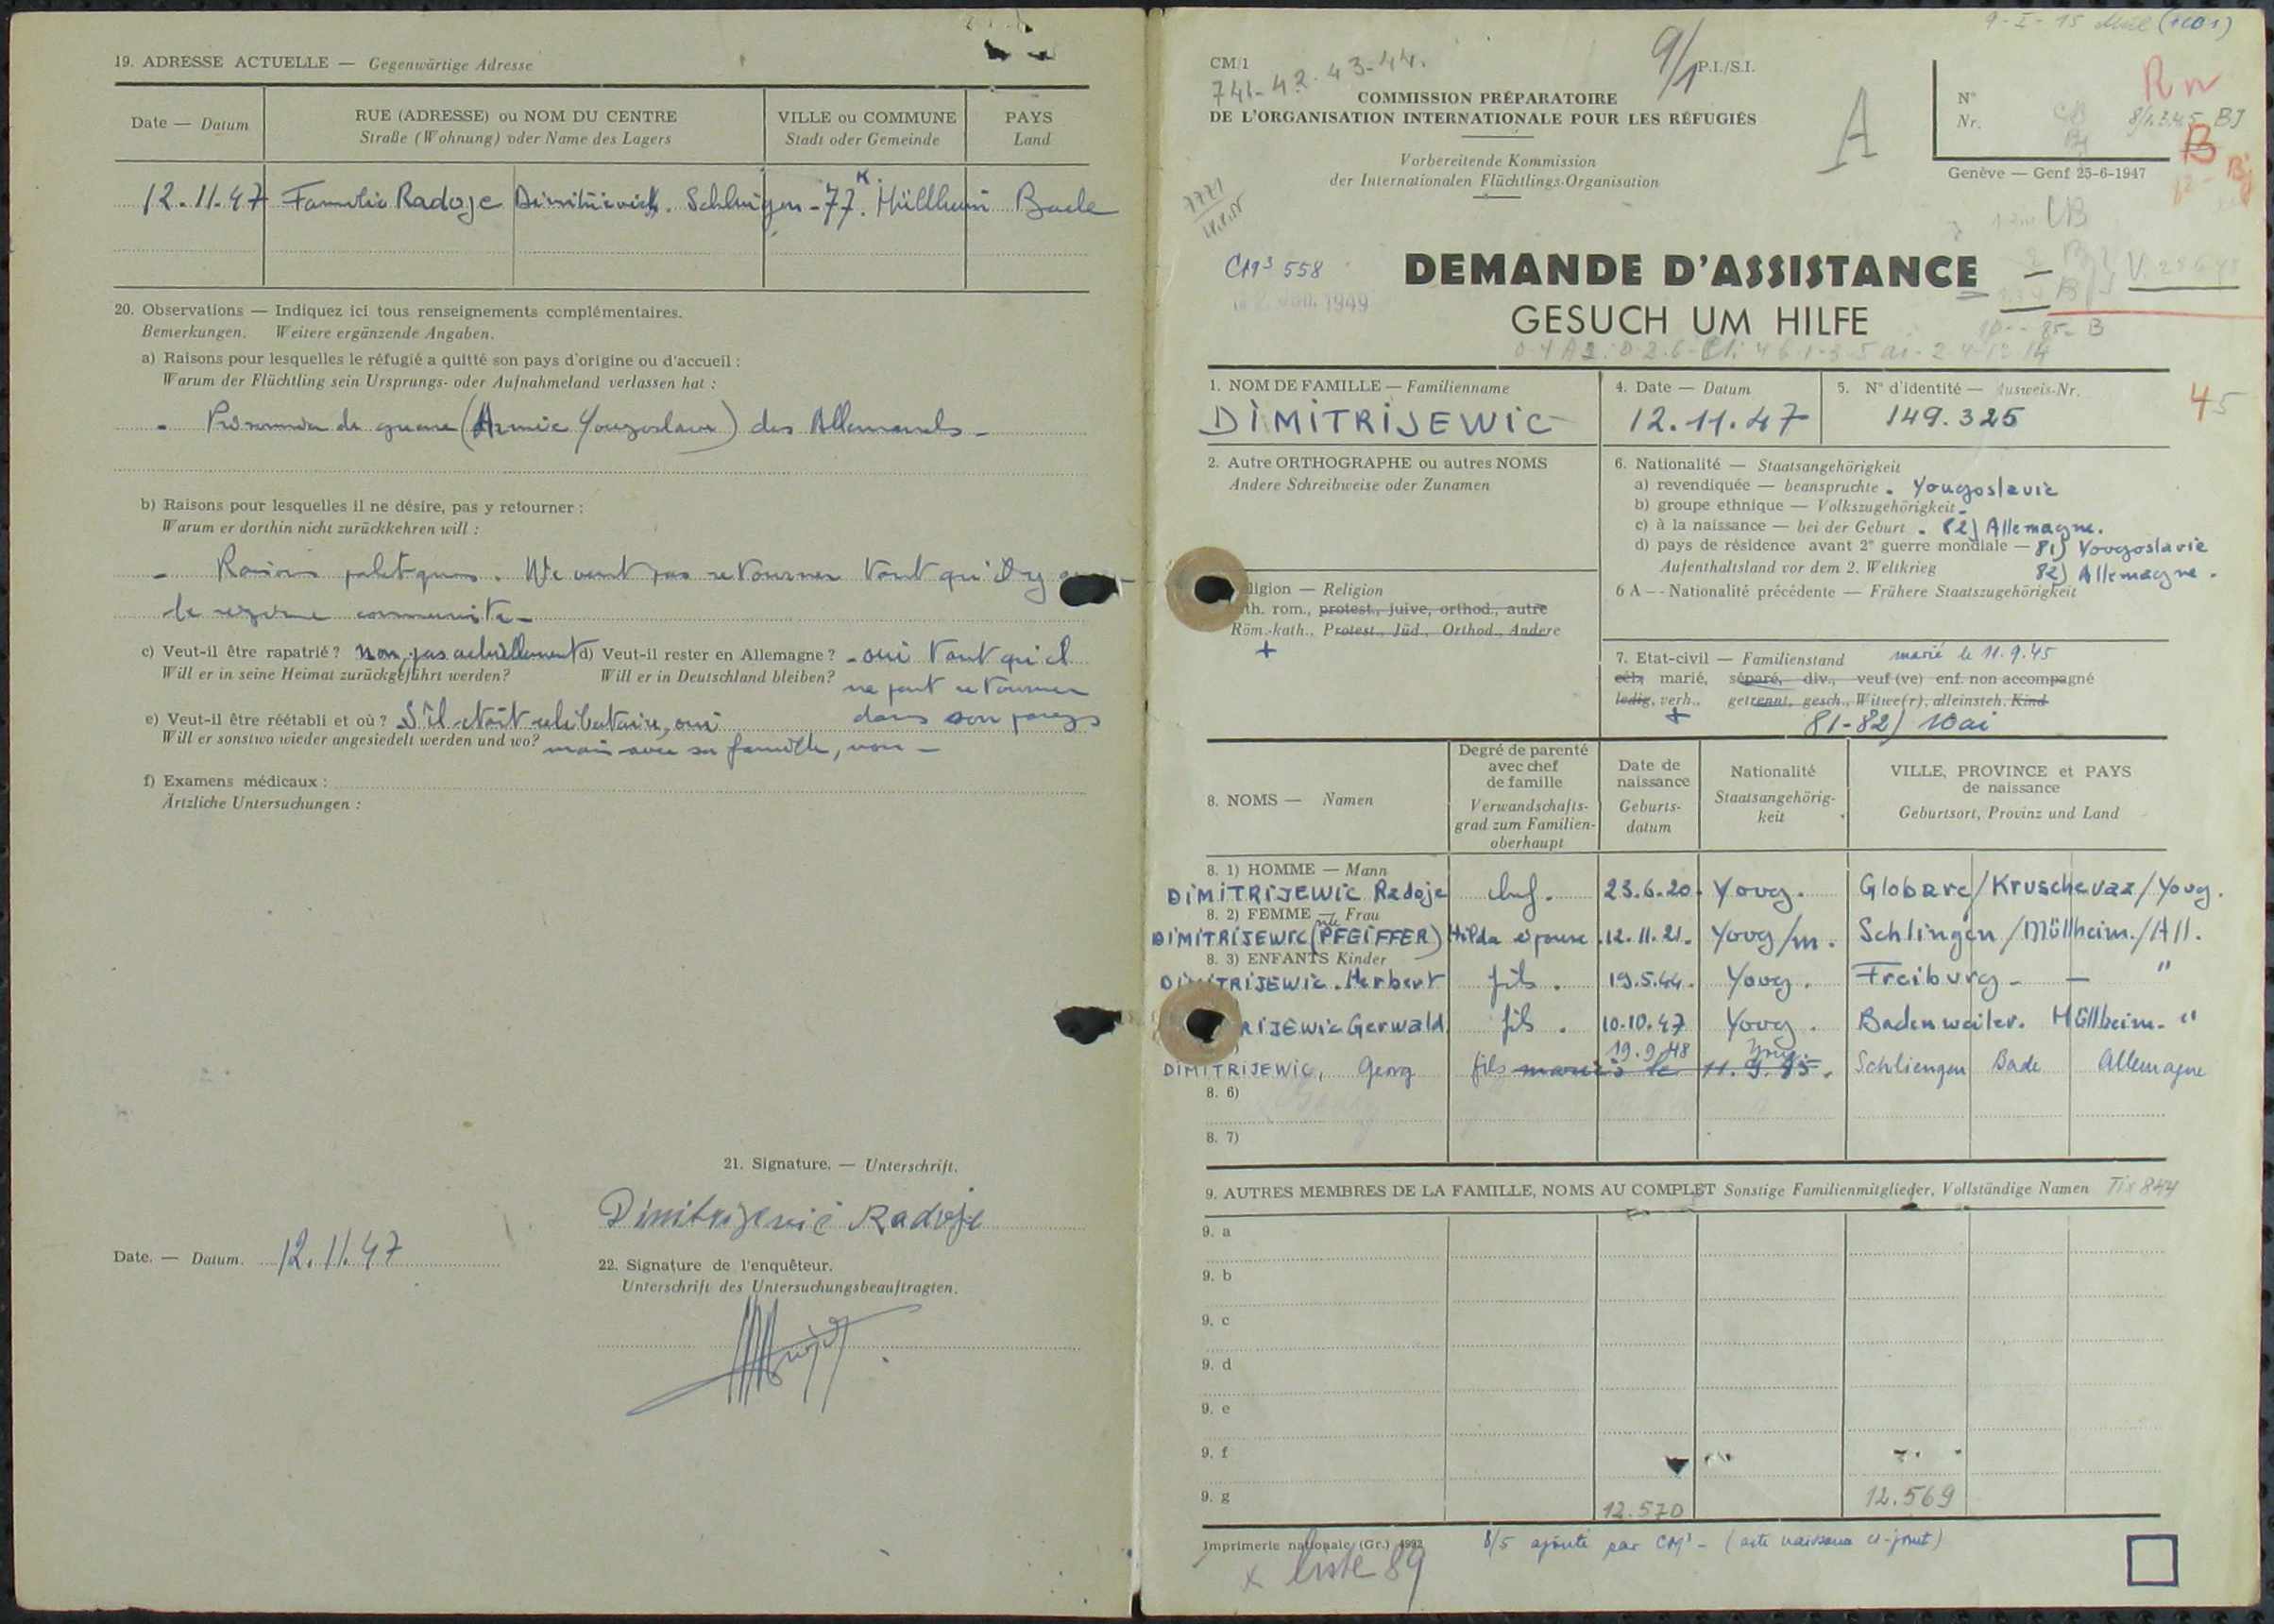 19. ADRESSE ACTUELLE — Gegenwärtige Adresse
Date — Datum
RUE (ADRESSE) ou NOM DU CENTRE
Straße (Wohnung) oder Name des Lagers
VILLE ou COMMUNE
Stadt oder Gemeinde
PAYS
Land
12.11.47 Familie Radoje Dimitrievich. Schlingen - 77. K. Müllheim Bade
20. Observations — Indiquez ici tous renseignements complémentaires.
Bemerkungen. Weitere ergänzende Angaben.
a) Raisons pour lesquelles le réfugié a quitté son pays d'origine ou d'accueil :
Warum der Flüchtling sein Ursprungs- oder Aufnahmeland verlassen hat :
- Prisonnier de guerre (Armée Yougoslave) des Allemands -
b) Raisons pour lesquelles il ne désire, pas y retourner :
Warum er dorthin nicht zurückkehren will :
- Raisons politiques. Ne veut pas retourner tant qu'il y
le régime communiste -
c) Veut-il être rapatrié ? Non, pas actuellement d) Veut-il rester en Allemagne ? - oui tant qu'il
Will er in seine Heimat zurückgeführt werden? Will er in Deutschland bleiben? ne peut retourner
dans son pays
e) Veut-il être réétabli et où ? S'il était célibataire, oui
Will er sonstwo wieder angesiedelt werden und wo? mais avec sa famille, non -
f) Examens médicaux :
Ärtzliche Untersuchungen :
21. Signature. — Unterschrift.
Dimitrijević Radoje
Date. — Datum. 12.11.47
22. Signature de l'enquêteur.
Unterschrift des Untersuchungsbeauftragten.
CM/1
741-42.43-44.
9/1
P.I./S.I.
COMMISSION PRÉPARATOIRE
DE L'ORGANISATION INTERNATIONALE POUR LES RÉFUGIÉS
Vorbereitende Kommission
der Internationalen Flüchtlings-Organisation
A
N°
Nr.
Rn
B
Genève — Genf 25-6-1947
CB
CM3 558
1949
DEMANDE D'ASSISTANCE
GESUCH UM HILFE
1. NOM DE FAMILLE — Familienname
DIMITRIJEWIC
4. Date — Datum
12.11.47
5. N° d'identité — Ausweis-Nr.
149.325
45
2. Autre ORTHOGRAPHE ou autres NOMS
Andere Schreibweise oder Zunamen
6. Nationalité — Staatsangehörigkeit
a) revendiquée — beanspruchte . Yougoslavie
b) groupe ethnique — Volkszugehörigkeit -
c) à la naissance — bei der Geburt . 82) Allemagne.
d) pays de résidence avant 2e guerre mondiale — 81) Yougoslavie
Aufenthaltsland vor dem 2. Weltkrieg 82) Allemagne.
6 A — Nationalité précédente — Frühere Staatszugehörigkeit
ligion — Religion
th. rom., protest., juive, orthod., autre
Röm.-kath., Protest., Jüd., Orthod., Andere
+
7. Etat-civil — Familienstand marié le 11.9.45
célb. marié, séparé, div., veuf (ve) enf. non accompagné
ledig, verh., getrennt, gesch., Witwe(r), alleinsteh. Kind
+ 81-82)
8. NOMS — Namen
Degré de parenté avec chef de famille
Verwandschafts-grad zum Familien-oberhaupt
Date de naissance
Geburts-datum
Nationalité
Staatsangehörig-keit
VILLE, PROVINCE et PAYS de naissance
Geburtsort, Provinz und Land
8. 1) HOMME — Mann
DIMITRIJEWIC Radoje chef. 23.6.20. Youg. Globare / Kruschevaz / Youg.
8. 2) FEMME — Frau
DIMITRIJEWIC (née PFEIFFER) Hilda épouse .12.11.21. Youg/m. Schlingen / Müllheim. / All.
8. 3) ENFANTS Kinder
DIMITRIJEWIC. Herbert fils. 19.5.44. Youg. Freiburg - — "
RIJEWIC Gerwald fils. 10.10.47 Youg. Badenweiler. Müllheim. "
DIMITRIJEWIC, Georg fils 19.9.48 Youg. mariés le 11.9.45. Schliengen Bade Allemagne
8. 6)
8. 7)
9. AUTRES MEMBRES DE LA FAMILLE, NOMS AU COMPLET Sonstige Familienmitglieder, Vollständige Namen
9. a
9. b
9. c
9. d
9. e
9. f
9. g
12.570
12.569
Imprimerie nationale (Gr.) 4992
8/5 ajouté par CM3 - (acte naissance ci-joint)
x liste 89